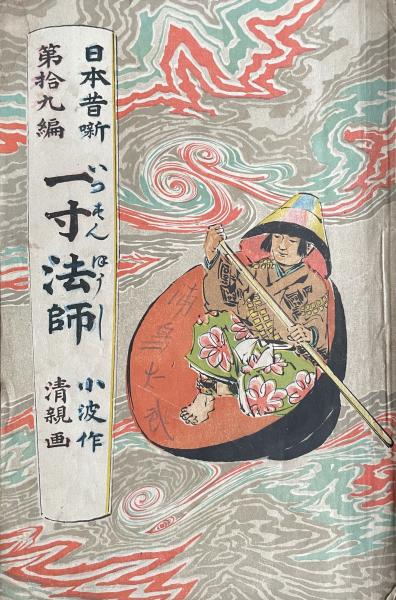 日本昔噺
第拾九編
一寸法師
いつすんぼうし
小波作
清親画